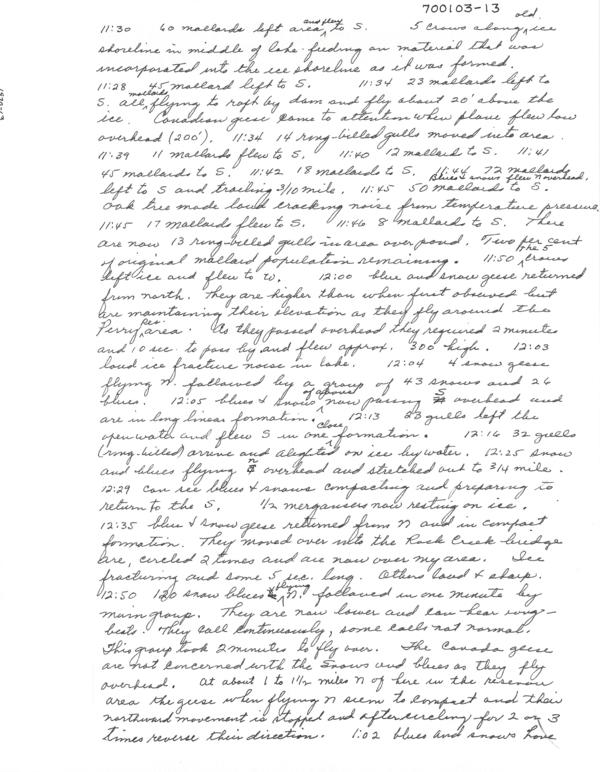 700103-13
old
11:30 60 mallards left area and flew to S. 5 crows along ice
shoreline in middle of lake feeding on material that was
incorporated into the ice shoreline as it was formed.
11:28 45 mallard left to S. 11:34 23 mallards left to
S. all mallards flying to raft by dam and fly about 20' above the
ice. Canadian geese came to attention when plane flew low
overhead (200'). 11:34 14 ring-billed gulls moved into area.
11:39 11 mallards flew to S. 11:40 12 mallard to S. 11:41
45 mallards to S. 11:42 18 mallards to S. 11:44 72 mallards
left to S and trailing 3/10 mile. Blues & snows flew N overhead. 11:45 50 mallards to S.
Oak tree made loud cracking noise from temperature pressure.
11:45 17 mallards flew to S. 11:46 8 mallards to S. There
are now 13 ring-billed gulls in area over pond. Two per cent
of original mallard population remaining. 11:50 the 5 crows
left ice and flew to W. 12:00 blue and snow geese returned
from north. They are higher than when first observed but
are maintaining their elevation as they fly around the
Perry Res. area. As they passed overhead they required 2 minutes
and 10 sec. to pass by and flew approx. 300' high. 12:03
loud ice fracture noise in lake. 12:04 4 snow geese
flying N. followed by a group of 43 snows and 26
blues. 12:05 blues & snows of above now passing S overhead and
are in long linear formation. 12:13 23 gulls left the
open water and flew S in one close formation. 12:16 32 gulls
(ring-billed) arrive and alighted on ice by water. 12:25 snow
and blues flying N overhead and stretched out to 3/4 mile.
12:29 can see blues & snows compacting and preparing to
return to the S. 1/2 mergansers now resting on ice.
12:35 blue & snow geese returned from N and in compact
formation. They moved over into the Rock Creek bridge
are, circled 2 times and are now over my area. Ice
fracturing and some 5 sec. long. Others loud & sharp.
12:50 120 snow blues flying N. followed in one minute by
main group. They are now lower and can hear wing-
beats. They call continuously, some calls not normal.
This group took 2 minutes to fly over. The Canada geese
are not concerned with the snows and blues as they fly
overhead. At about 1 to 1 1/2 miles N of here in the reservoir
area the geese when flying N seem to compact and their
northward movement is stopped and after circling for 2 or 3
times reverse their direction. 1:02 blues and snows have